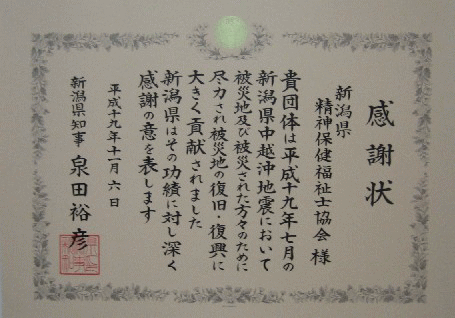 感謝状
新潟県
精神保健福祉士協会 様
貴団体は平成十九年七月の
新潟県中越沖地震において
被災地及び被災された方々のために
尽力され被災地の復旧・復興に
大きく貢献されました
新潟県はその功績に対し深く
感謝の意を表します
平成十九年十一月六日
新潟県知事 泉田裕彦